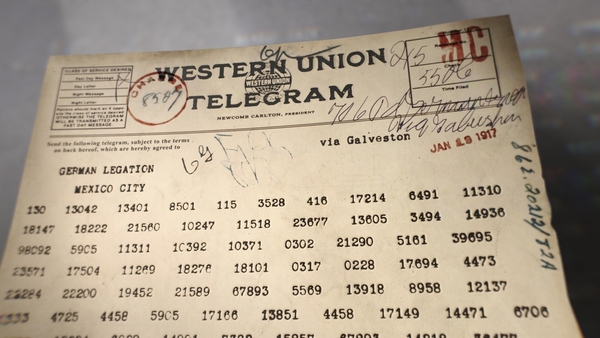 CLASS OF SERVICE DESIRED
Fast Day Message
Day Letter
Night Message
Night Letter
OTHERWISE THE TELEGRAM
WILL BE TRANSMITTED AS A
FAST DAY MESSAGE
CHARGE
8587
WESTERN UNION
WESTERN UNION
TELEGRAM
NEWCOMB CARLTON, PRESIDENT
Time Filed
Send the following telegram, subject to the terms
on back hereof, which are hereby agreed to
via Galveston
JAN 19 1917
GERMAN LEGATION
MEXICO CITY
130 13042 13401 8501 115 3528 416 17214 6491 11310
18147 18222 21560 10247 11518 23677 13605 3494 14936
98092 5905 11311 10392 10371 0302 21290 5161 39695
23571 17504 11269 18276 18101 0317 0228 17694 4473
22284 22200 19452 21589 67893 5569 13918 8958 12137
4725 4458 5905 17166 13851 4458 17149 14471 6706